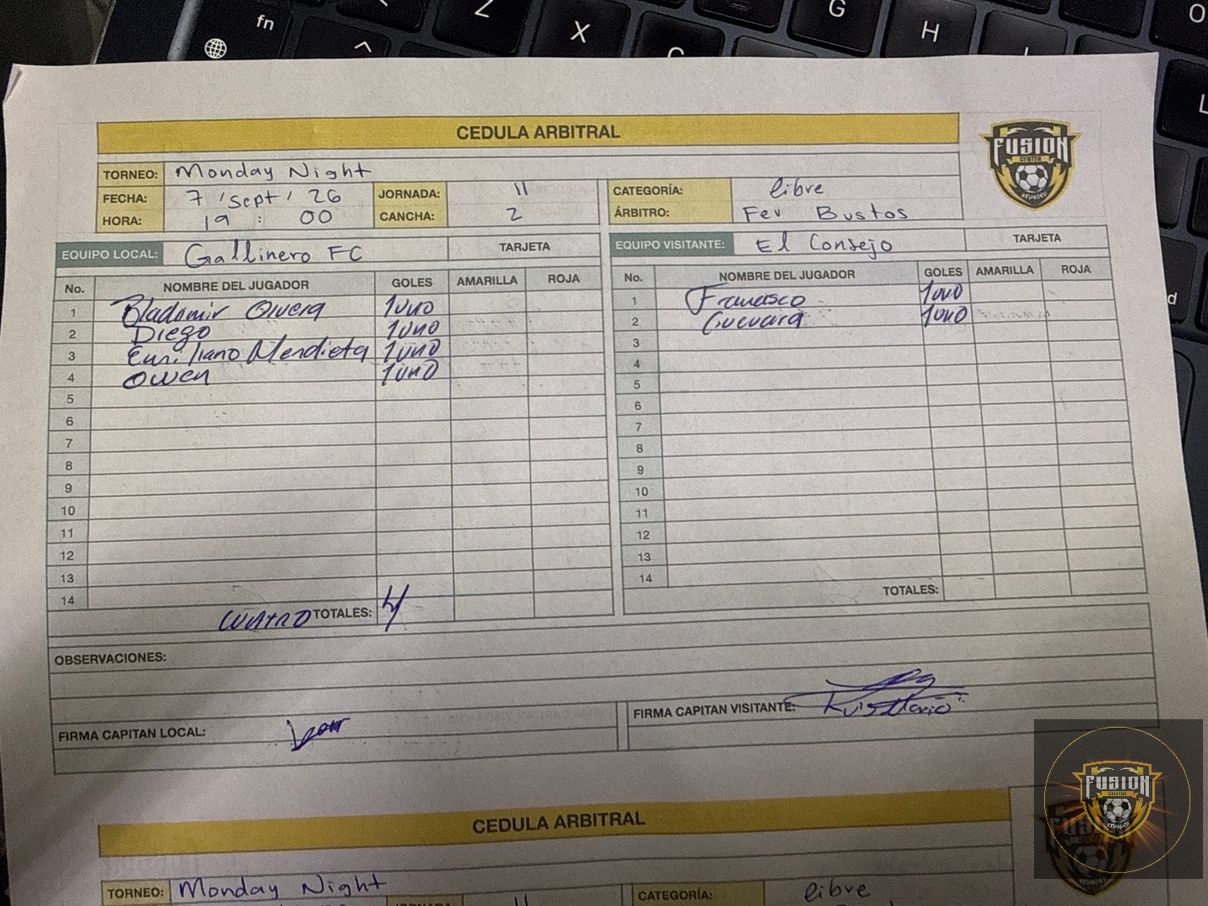 fn Z X C G H L O
CEDULA ARBITRAL
FUSION
CENTER
TORNEO: Monday Night
FECHA: 7 / sept / 26 JORNADA: 11 CATEGORÍA: libre
HORA: 19 : 00 CANCHA: 2 ÁRBITRO: Fer Bustos
EQUIPO LOCAL: Gallinero FC TARJETA EQUIPO VISITANTE: El Consejo TARJETA
No. NOMBRE DEL JUGADOR GOLES AMARILLA ROJA No. NOMBRE DEL JUGADOR GOLES AMARILLA ROJA
1 Bladimir Olvera 1uno 1 Francisco 1uno
2 Diego 1uno 2 Guevara 1uno
3 Emiliano Mendieta 1uno 3
4 Owen 1uno 4
5 5
6 6
7 7
8 8
9 9
10 10
11 11
12 12
13 13
14 14
cuatro TOTALES: 4 TOTALES:
OBSERVACIONES:
FIRMA CAPITAN LOCAL: FIRMA CAPITAN VISITANTE:
FUSION
CENTER
CEDULA ARBITRAL
TORNEO: Monday Night CATEGORÍA: libre
JORNADA: 11